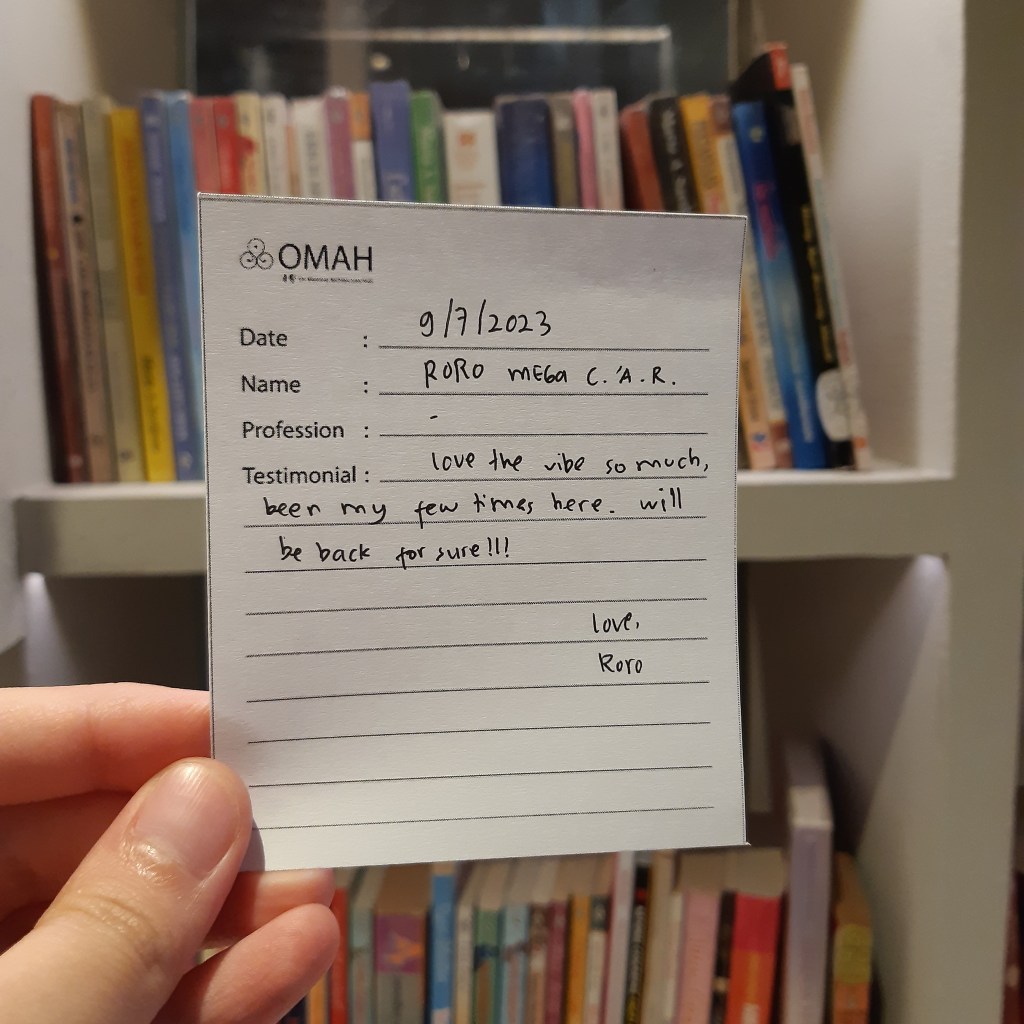 OMAH
Date : 9/7/2023
Name : RORO MEGA C.'A.R.
Profession : -
Testimonial : love the vibe so much,
been my few times here. will
be back for sure!!!
love,
Roro